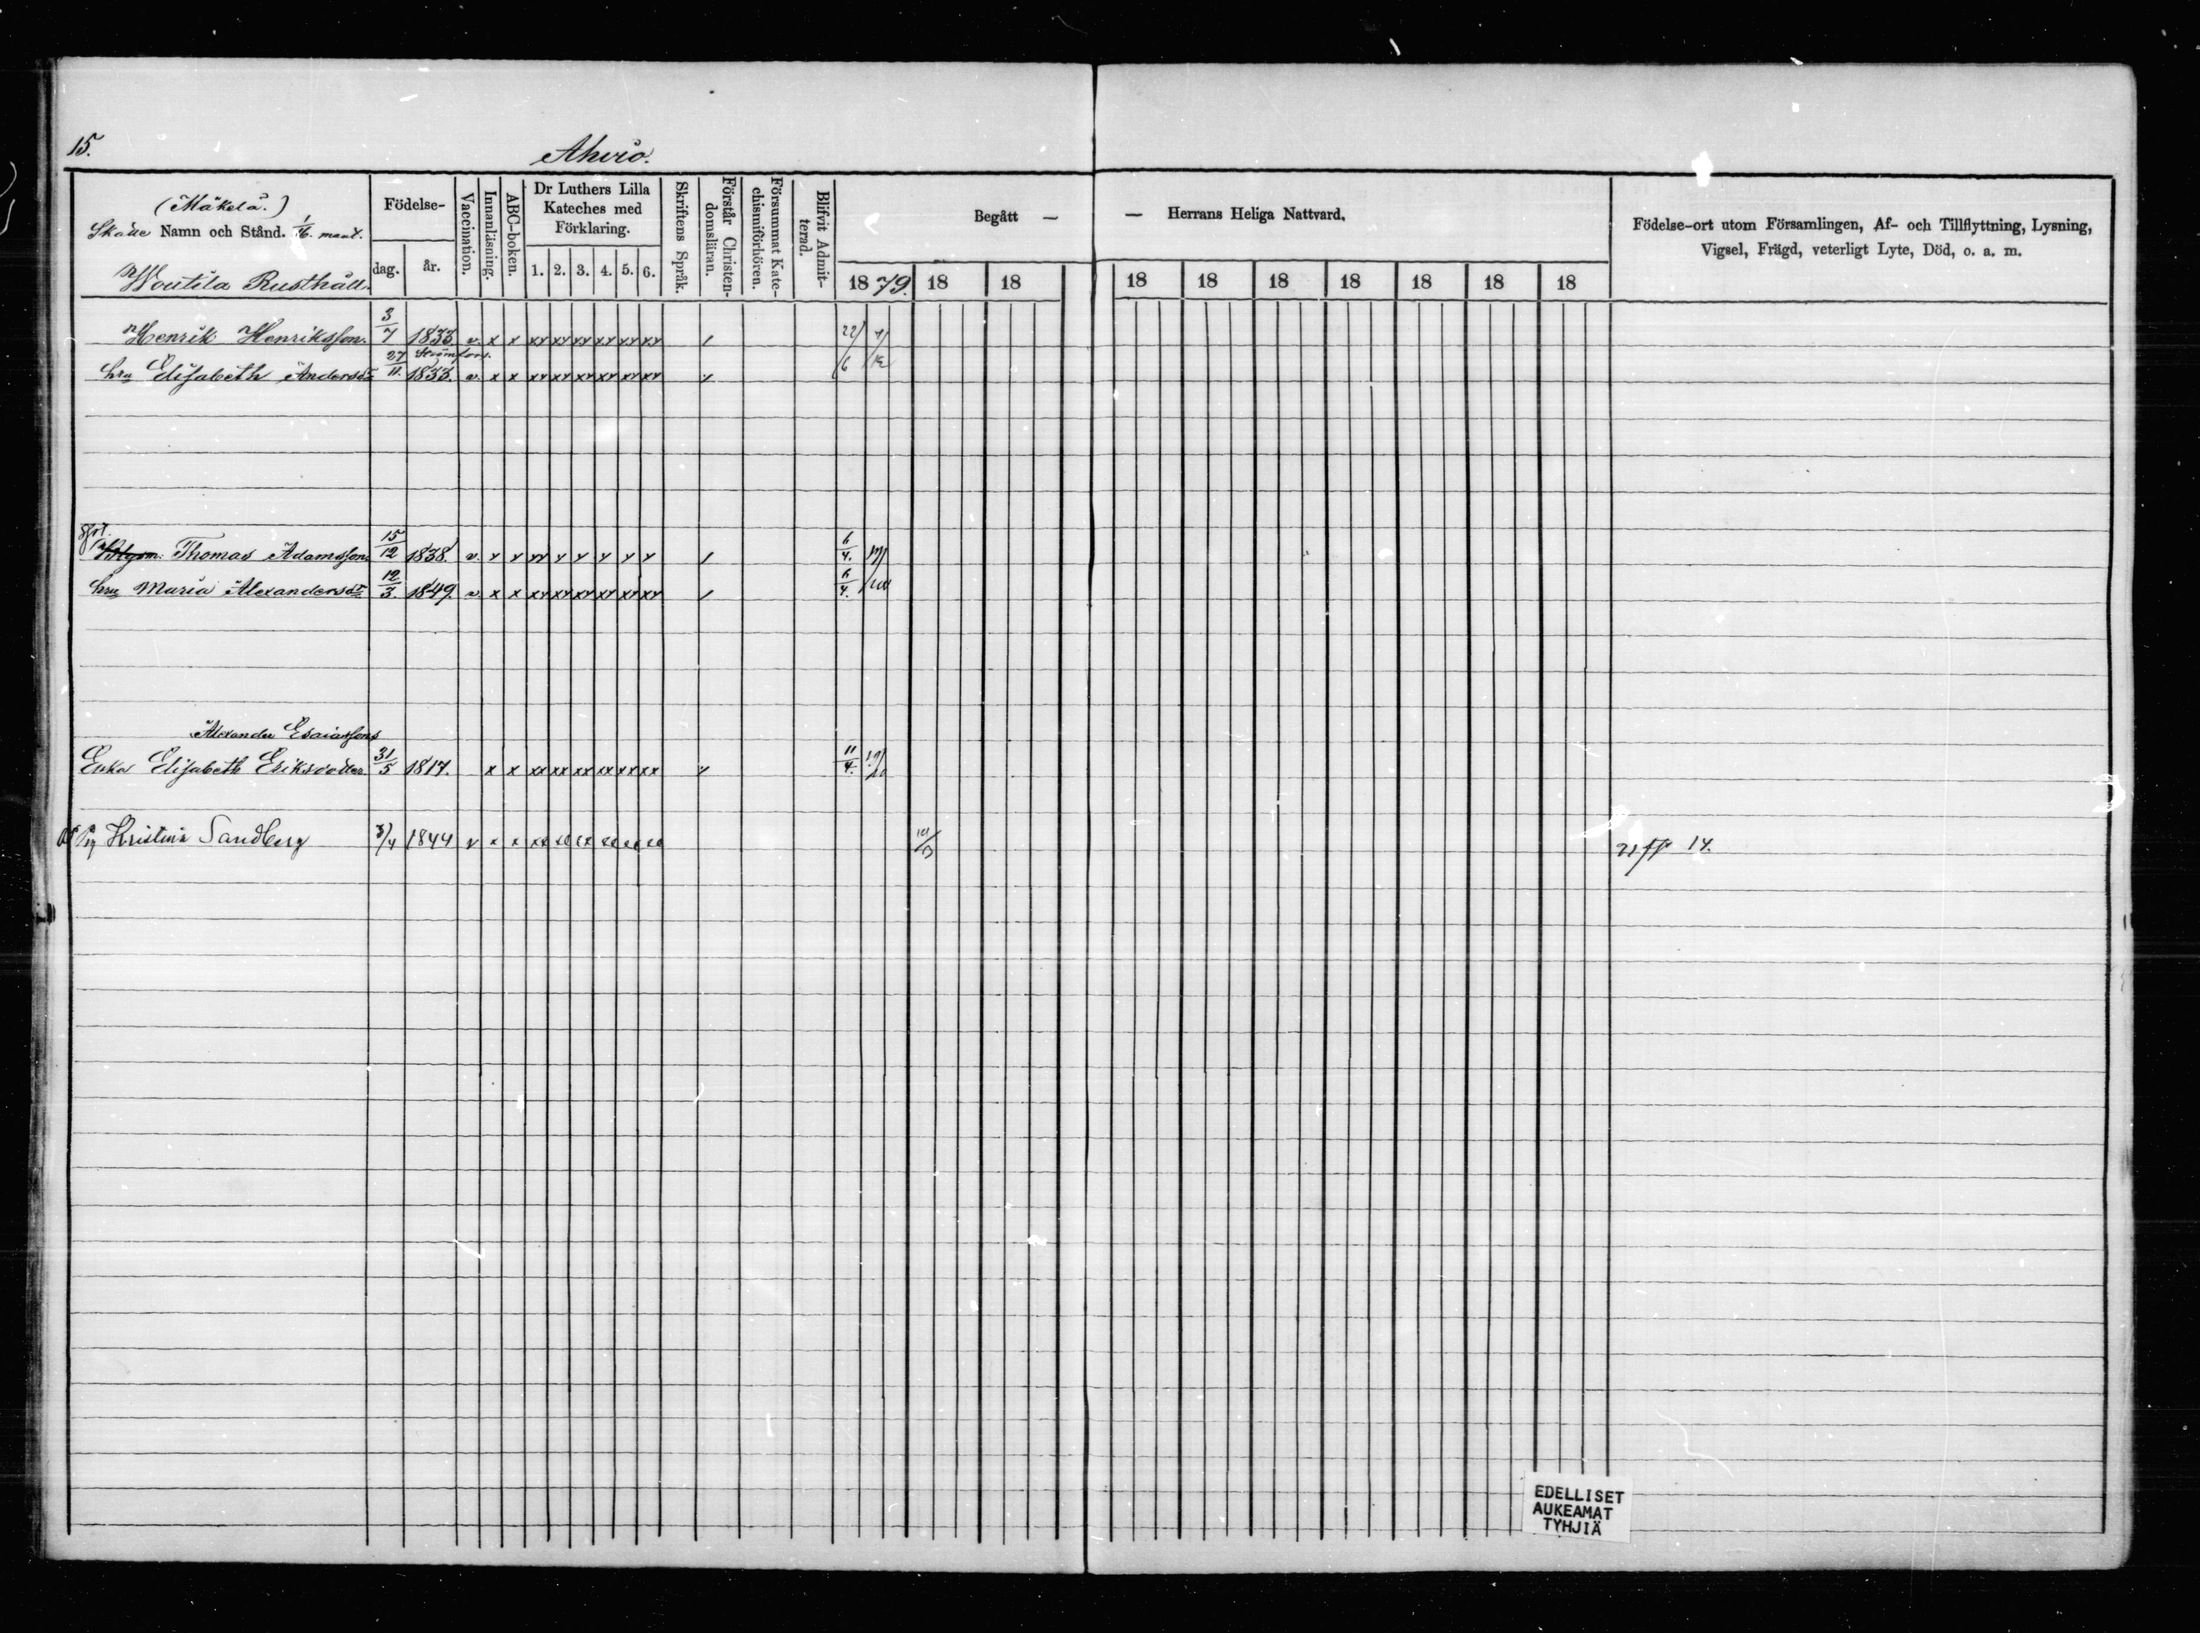 15.
Ahvio.
(Mäkelä.)
Skatte Namn och Stånd. 1/6 mant.
Woutila Rusthåll.
Födelse-
dag.
år.
Vaccination.
Innanläsning.
ABC-boken.
Dr Luthers Lilla
Kateches med
Förklaring.
1. 2. 3. 4. 5. 6.
Skriftens Språk.
Förstår Christen-
domsläran.
Försummat Kate-
chismiförhören.
Blifvit Admit-
terad.
Begått —
— Herrans Heliga Nattvard.
1879. 18 18 18 18 18 18 18 18 18
Födelse-ort utom Församlingen, Af- och Tillflyttning, Lysning,
Vigsel, Frägd, veterligt Lyte, Död, o. a. m.
Henrik Henriksson. 3/7 1833. v. x x xx xx xx xx xx xx 22/6
Strömfors.
hru Elisabeth Andersdr 27/11. 1833. v. x x xx xx xx xx xx xx
Thomas Adamsson 15/12 1838. v. x x xx x x x x x 6/4.
hru Maria Alexandersdr 12/3. 1849. v x x xx xx xx xx xx xx 6/4.
Alexander Esaiassons
Enka Elisabeth Eriksdotter 31/5 1817. x x xx xx xx xx xx xx 11/4.
Pig Kristina Sandberg 1844 v x x 14.
EDELLISET
AUKEAMAT
TYHJIÄ